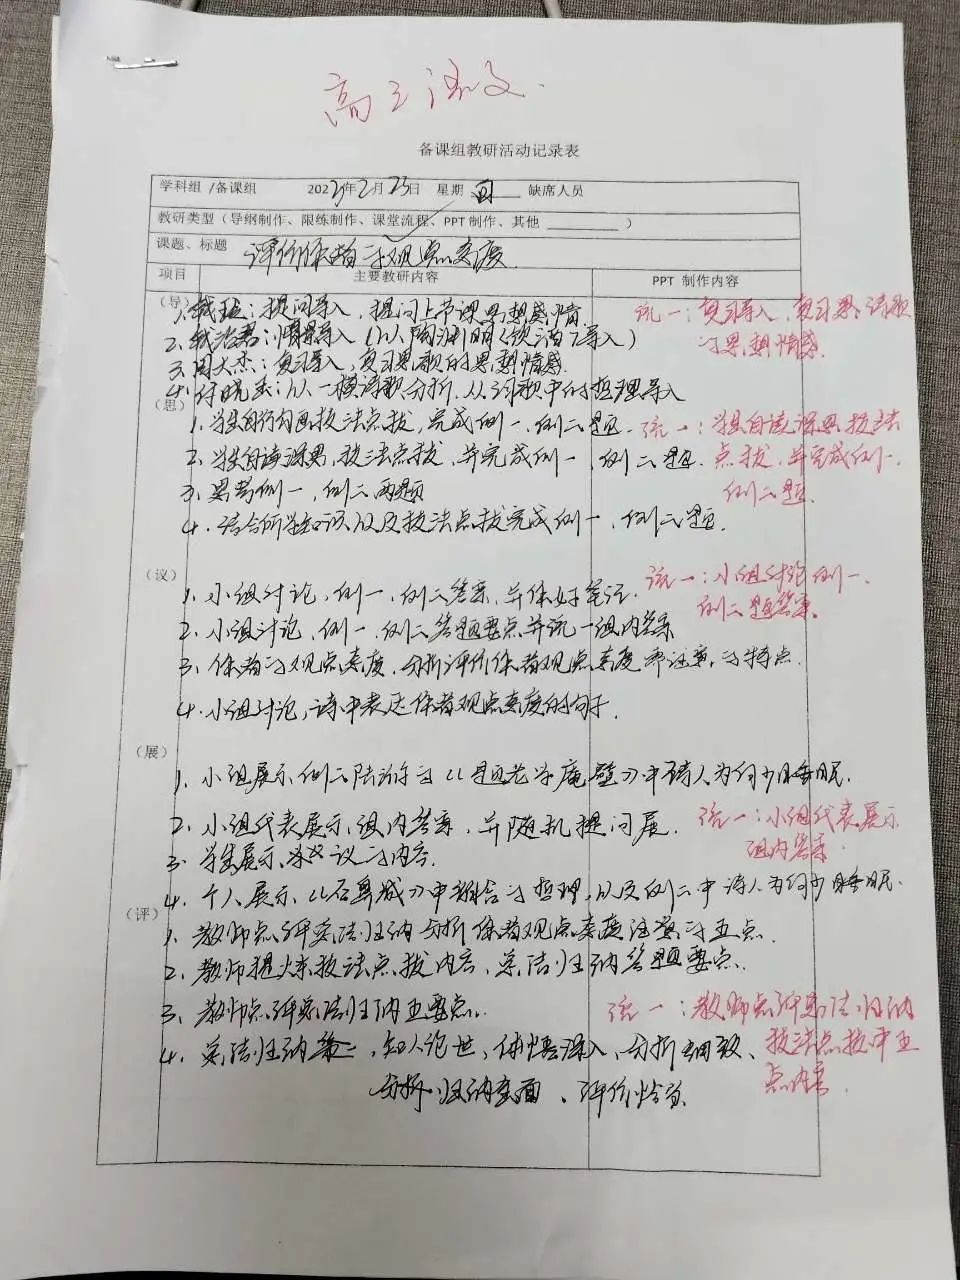 高三语文
备课组教研活动记录表
学科组/备课组 202 年2月23日 星期 四 缺席人员
教研类型（导纲制作、限练制作、课堂流程、PPT制作、其他 ）
课题、标题 评价作者的观点态度
项目 主要教研内容 PPT 制作内容
（导）
1、 ：提问导入，提问上节课思想感情 统一：复习导入，复习思 诗歌
2、 ：情景导入（以陶渊明《饮酒》导入） 的思想情感
3、周大杰：复习导入，复习思 歌的思想情感
4、 ：以一模诗歌分析，从词歌中的哲理导入
（思）
1、学生自行勾画技法点拨，完成例一、例二题 统一：学生自读深思，技法
2、学生自读深思，技法点拨，并完成例一，例二题. 点拨，并完成例一、
3、思考例一，例二两题 例二题.
4、结合所学知识以及技法点拨完成例一，例二题.
（议）
1、小组讨论，例一，例二答案，并做好笔记. 统一：小组讨论例一、
2、小组讨论，例一、例二答题要点并统一组内答案 例二题答案.
3、作者的观点态度，分析评价作者观点态度 注意的特点.
4、小组讨论，诗中表达作者观点态度的句子.
（展）
1、小组展示例二陆游的《题老学庵壁》中诗人为何少睡眠.
2、小组代表展示组内答案，并随机提问展. 统一：小组代表展示
3、学生展示、 议的内容. 组内答案.
4、个人展示《石鼻城》中 含的哲理，以及例二中诗人为何少睡眠.
（评）
1、教师点评总结归纳分析作者观点态度注意的五点.
2、教师提 技法点拨内容，总结归纳答题要点.
3、教师点评总结归纳五要点. 统一：教师点评总结归纳
4、总结归纳 ，知人论世，体悟深入，分析细致、 技法点拨中五
分析归纳全面、评价恰当 点内容.